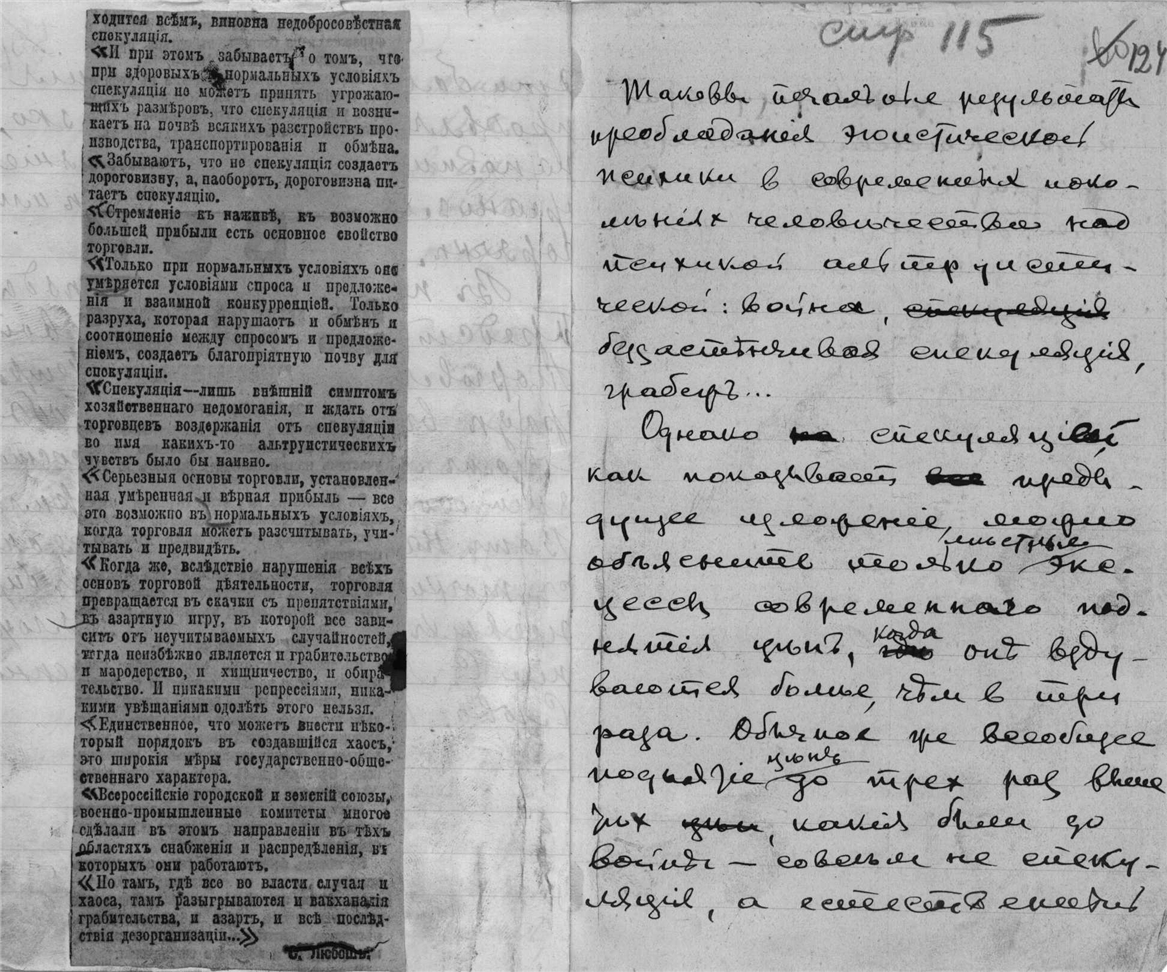 ходится всѣмъ, виновна недобросовѣстная
спекуляція.
«И при этомъ забываетъ о томъ, что
при здоровыхъ и нормальныхъ условіяхъ
спекуляція не можетъ принять угрожаю-
щихъ размѣровъ, что спекуляція и возни-
каетъ на почвѣ всякихъ разстройствъ про-
изводства, транспортированія и обмѣна.
«Забываютъ, что не спекуляція создаетъ
дороговизну, а, наоборотъ, дороговизна пи-
таетъ спекуляцію.
«Стремленіе къ наживѣ, къ возможно
большей прибыли есть основное свойство
торговли.
«Только при нормальныхъ условіяхъ оно
умѣряется условіями спроса и предложе-
нія и взаимной конкурренціей. Только
разруха, которая нарушаетъ и обмѣнъ и
соотношеніе между спросомъ и предложе-
ніемъ, создаетъ благопріятную почву для
спекуляціи.
«Спекуляція—лишь внѣшній симптомъ
хозяйственнаго недомоганія, и ждать отъ
торговцевъ воздержанія отъ спекуляціи
во имя какихъ-то альтруистическихъ
чувствъ было бы наивно.
«Серьезныя основы торговли, установлен-
ная умѣренная и вѣрная прибыль — все
это возможно въ нормальныхъ условіяхъ,
когда торговля можетъ разсчитывать, учи-
тывать и предвидѣть.
«Когда же, вслѣдствіе нарушенія всѣхъ
основъ торговой дѣятельности, торговля
превращается въ скачки съ препятствіями,
въ азартную игру, въ которой все зави-
ситъ отъ неучитываемыхъ случайностей,
тогда неизбѣжно является и грабительство
и мародерство, и хищничество, и обира-
тельство. И никакими репрессіями, ника-
кими увѣщаніями одолѣть этого нельзя.
«Единственное, что можетъ внести нѣко-
торый порядокъ въ создавшійся хаосъ,
это широкія мѣры государственно-обще-
ственнаго характера.
«Всероссійскіе городской и земскій союзы,
военно-промышленные комитеты многое
сдѣлали въ этомъ направленіи въ тѣхъ
областяхъ снабженія и распредѣленія, въ
которыхъ они работаютъ.
«Но тамъ, гдѣ все во власти случая и
хаоса, тамъ разыгрываются и вакханалія
грабительства, и азартъ, и всѣ послѣд-
ствія дезорганизаціи...»
С. Любошъ.
стр 115
124
Таковы печальные результаты
преобладанія эгоистической
психики в современных поко-
лѣніях человѣчества над
психикой альтруисти-
ческой: война, спекуляція
беззастѣнчивая спекуляція,
грабеж...
Однако на спекуляціей
как показывает все преды-
дущее изложеніе, можно
объяснить только мѣстные экс-
цессы современного под-
нятія цѣнъ, когда онѣ взду-
ваются болѣе, чѣм в три
раза. Обычное же всеобщее
поднятіе цѣнъ до трех раз выше
тѣх цѣн, какія были до
войны — совсѣм не спеку-
ляція, а естественный